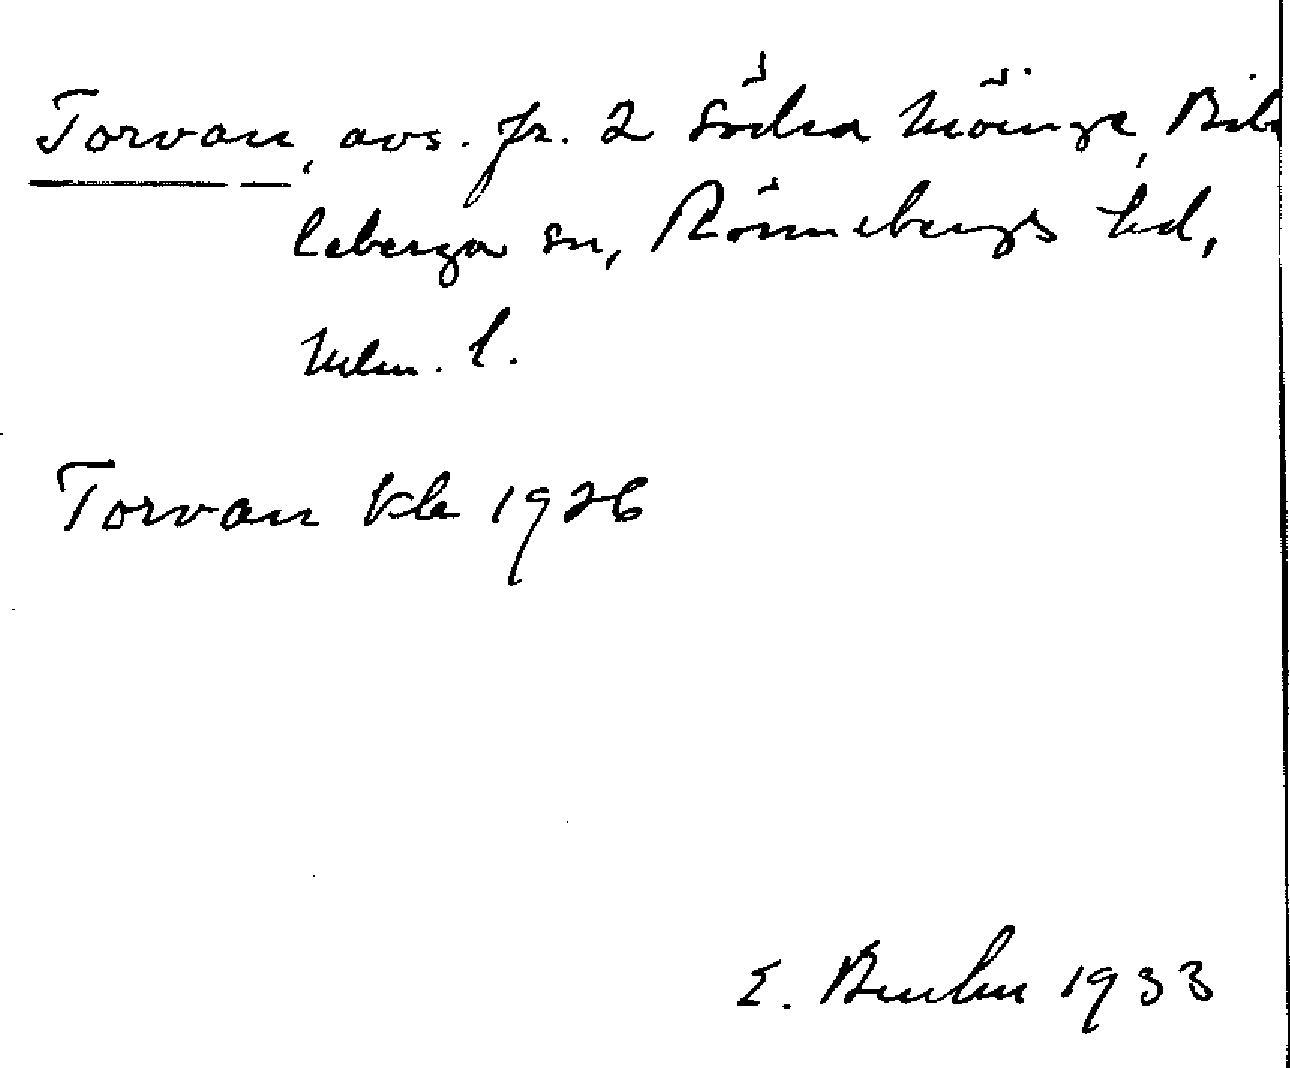 Torvan, avs. fr. 2 Södra Möinge, Bil
leberga sn, Rönnebergs hd,
Mlm. l.
Torvan kb 1926
E. 1933